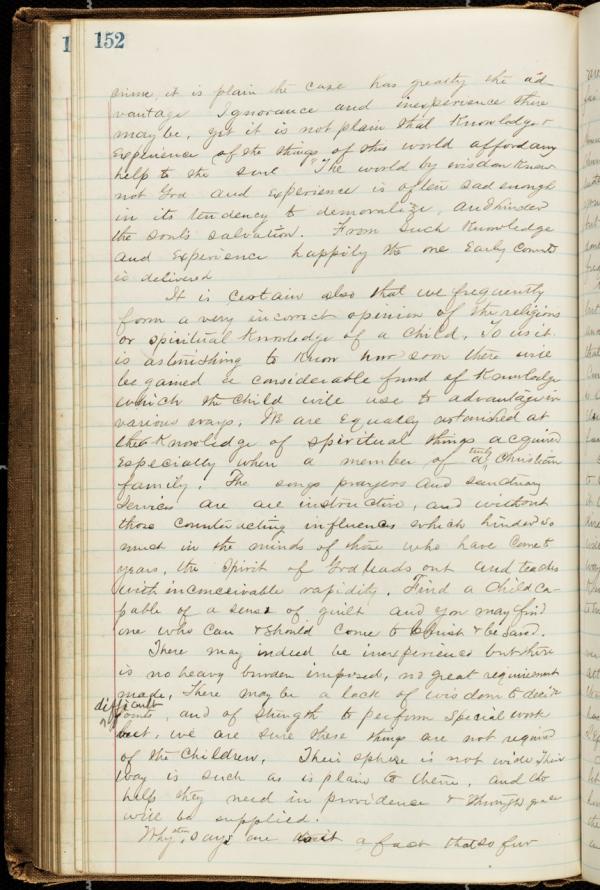 152
crime, it is plain the case has greatly the ad
vantage Ignorance and inexperience there
may be, yet it is not plain that Knowledge &
Experience of the things of this world afford any
help to the soul "The world by wisdom Knew
not God and Experience is often sad enough
in its tendency to demoralize, and hinder
the soul's salvation. From such Knowledge
and Experience happily the one Early Converted
is delivered
It is certain also that we frequently
form a very incorrect opinion of the religious
or spiritual Knowledge of a child. To us it
is astonishing to Know how soon there will
be gained a considerable fund of Knowledge
which the child will use to advantage in
various ways. We are Equally astonished at
the Knowledge of spiritual things acquired
Especially when a member of a truly Christian
family. The songs prayers and sanctuary
services are are instructive, and without
those counteracting influences which hinder so
much in the minds of those who have come to
years, the Spirit of God leads out and teaches
with inconceivable rapidity. Find a child ca-
pable of a sense of guilt and you may find
one who can & should come to Christ & be saved.
There may indeed be inexperience but there
is no heavy burden imposed, no great requirement
made, There may be a lack of wisdom to decide
difficult
points, and of strength to perform special work
but, we are sure these things are not required
of the children. Their sphere is not wide Their
way is such as is plain to them, and the
help they need in providence & through grace
will be supplied.
Why, says are a fact that so far